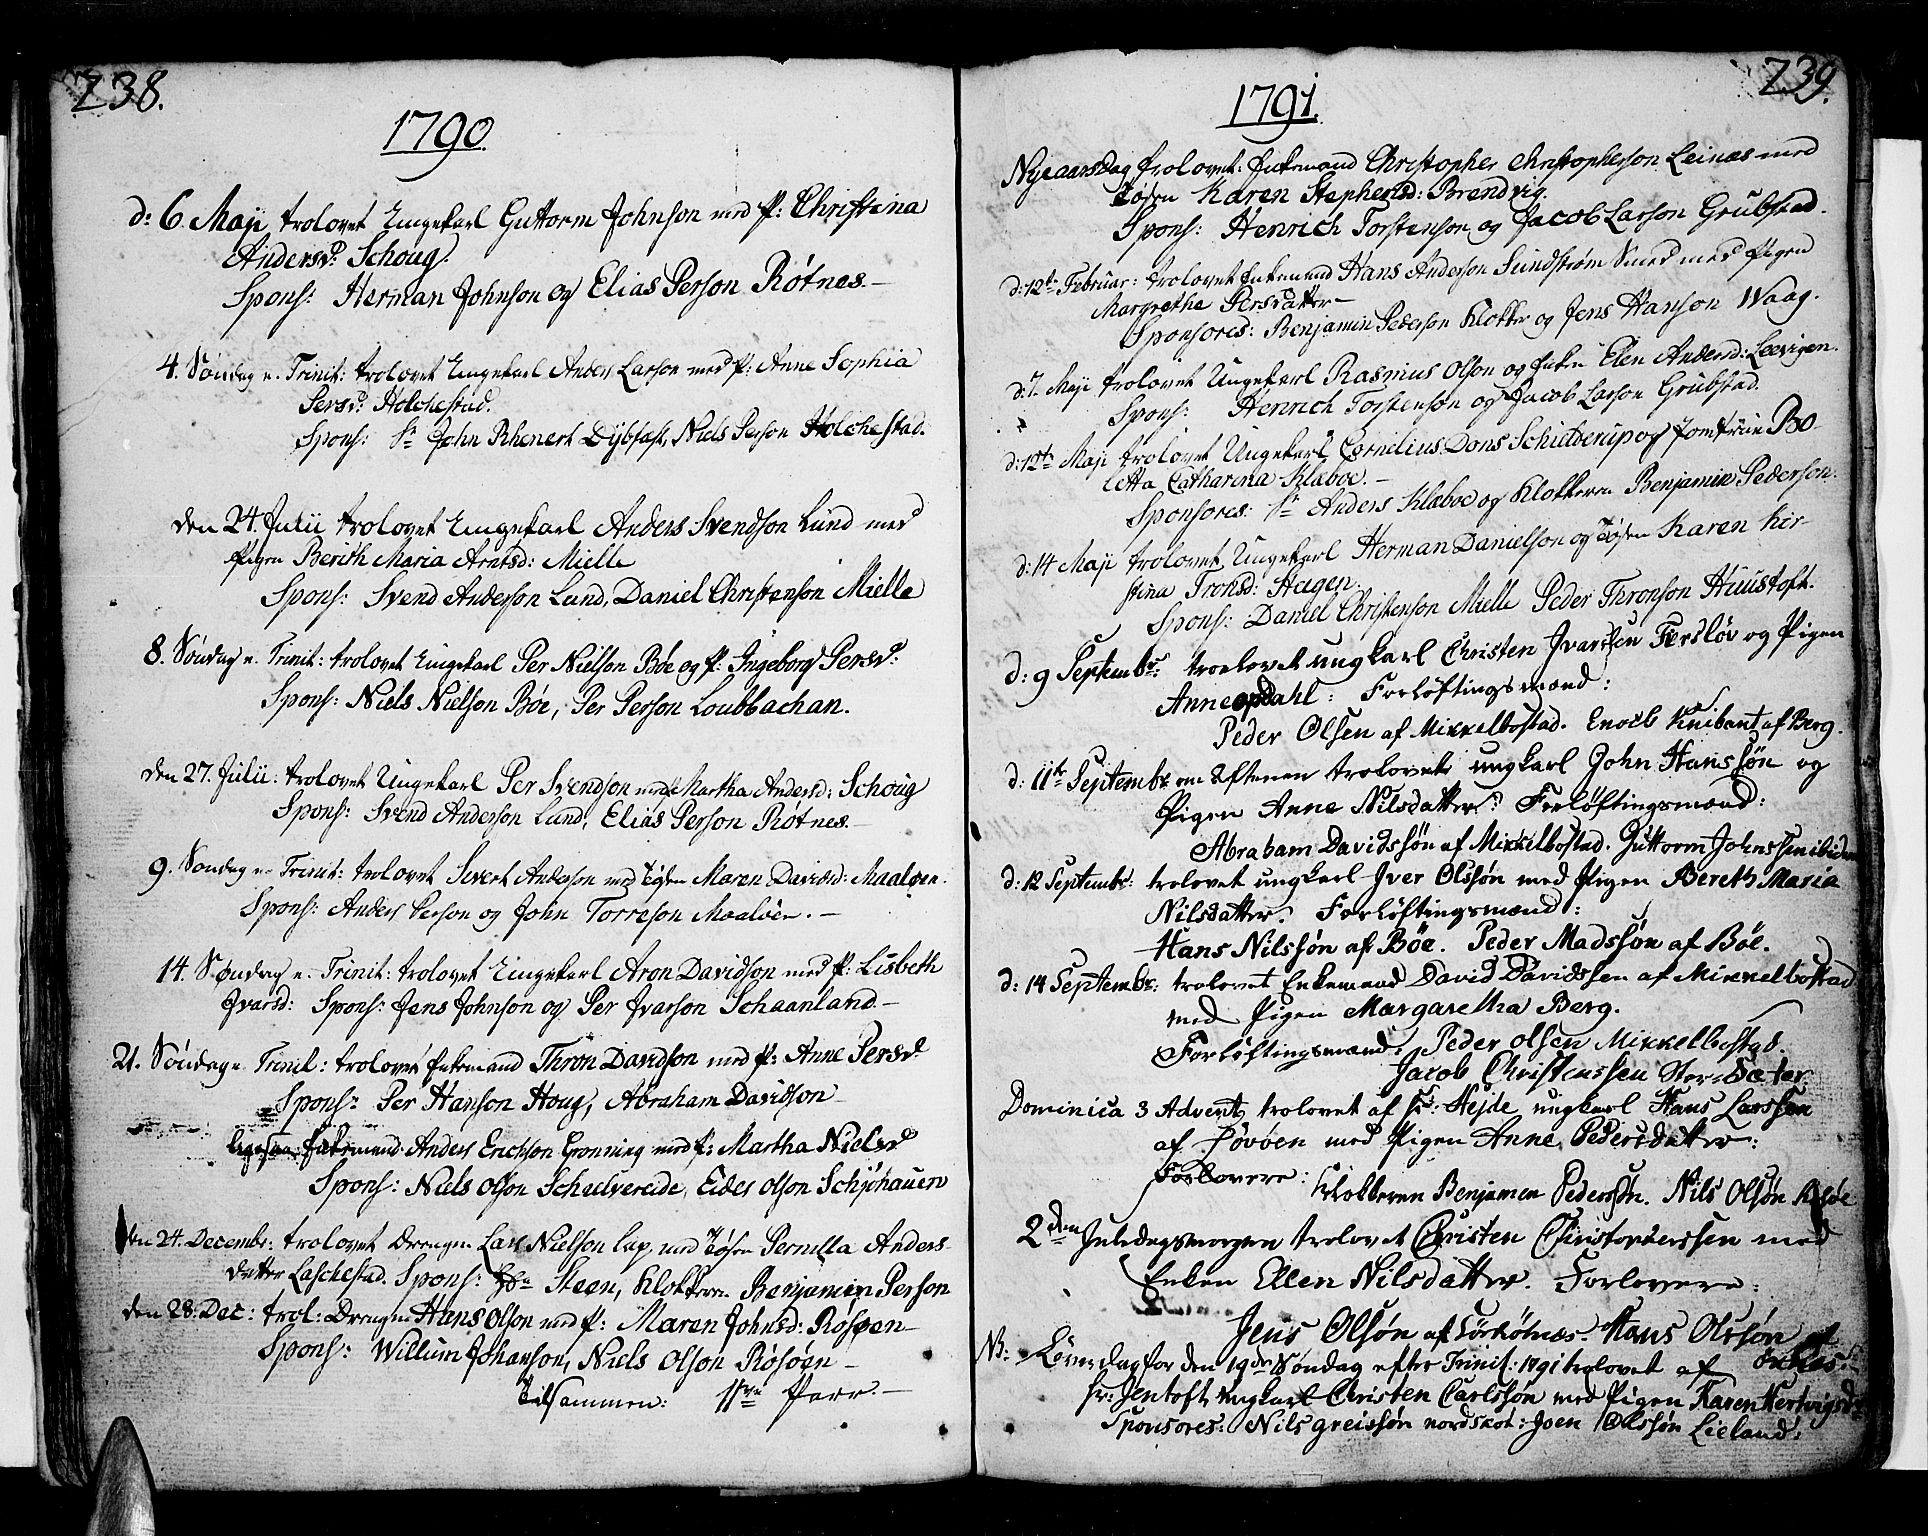 238.
1790
d: 6. Maji trolovet Ungekarl Guttorm Johnson med P: Christina
Andersd: Schoug.
Spons: Herman Johnson og Elias Person Røtnes.-
4. Søndag n. Trinit: trolovet Ungekarl Anders Larson med P: Anne Sophia
Persd: Holchestad.
Spons: Sr John Rhenert Dybfest, Niels Person Holchestad.
den 24 Julii trolovet Ungekarl Anders Svendson Lund med
Pigen Berith Maria Arntsd: Mielle
Spons: Svend Anderson Lund, Daniel Christenson Mielle
8. Søndag n. Trinit: trolovet Ungekarl Per Nielson Bøe og P: Ingeborg Persd:
Spons: Niels Nielson Bøe, Per Person Loubbachan.
den 27. Julii: trolovet Ungekarl Per Svendson med Martha Andersd: Schoug
Spons: Svend Anderson Lund, Elias Person Røtnes.-
9. Søndag n. Trinit: trolovet Sivert Anderson med Tøsen Maren Davidsd: Maaløen.
Spons: Anders Person og John Torreson Maaløen.-
14. Søndag n. Trinit: trolovet Ungekarl Aron Davidson med P: Lisbeth
Ivarsd: Spons: Jens Johnson og Per Ivarson Schaanland.-
21. Søndag n. Trinit: trolovet Enkemand Thron Davidson med P: Anne Persd:
Spons: Per Hanson Houg, Abraham Davidson
ligesaa Enkemand Anders Erichson Grønning med P: Martha Nielsd
Spons: Niels Olson Schulvereide, Eides Olson Schjøhauen
den 24. Decembr: trolovet Drengen Lars Nielson Lap, med Tøsen Pernilla Anders-
datter Laschestad. Spons: Steen, Klokkeren Benjamin Person
den 28. Dec: trol: Drengen Hans Olson med P: Maren Johnsd: Røsøen
Spons: Willum Johanson, Niels Olson Røsøen-
Tilsammen: 11ve Parr.-
239.
1791.
Nyeaarsdag trolovet: Enkemand Christopher Christopherson Leinæs med
Tøsen Karen Stephensd: Brendvig.
Spons: Henrich Torstenson og Jacob Larson Grubstad.
d: 12te Februar: trolovet Enkemand Hans Anderson Sundstrøm Smed med Pigen
Margrethe Persdatter-
Sponsores: Benjamin Pederson Klokker og Jens Hanson Waag.
d: 7. Maji trolovet Ungekarl Rasmus Olson og Enken Elen Andersd: Leevigen.
Spons: Henrich Torstenson og Jacob Larson Grubstad.
d: 12te Maji trolovet Ungekarl Cornelius Dons Schielderup og Jomfrue Bo-
letta Catharina Klæboe.-
Sponsores: Sr Anders Klæboe og Klokkeren Benjamin Pederson.
d: 14 Maji trolovet Ungekarl Herman Danielson og Tøsen Karen Kir-
stina Tronsd: Hagen.
Spons: Daniel Christenson Mielle Peder Thronson Huustoft.
d: 9 Septembr: troelovet ungkarl Christen Ivarssen Forsløv og Pigen
Anne opdahl: Forløftingsmænd:
Peder Olsen af Mikkelbostad. Enoch Knibant af Berg.
d: 11te Septembr om Aftenen trolovet ungkarl John Hanssøn og
Pigen Anne Nilsdatter: Forløftingsmænd:
Abraham Davidssøn af Mikkelbostad. Guttorm Johnssen ibidem
d: 12 Septembr: trolovet ungkarl Iver Olssøn med Pigen Bereth Maria
Nilsdatter. Forløftingsmænd:
Hans Nilssøn af Bøe. Peder Madssøn af Bøe.
d: 14 Septembr: trolovet Enkemand David Davidssen af Mikkelbostad
med Pigen Margaretha Berg.
Forløftingsmænd: Peder Olsen Mikkelbostad.
Jacob Christenssen Stor Sæter.
Dominica 3 Advent, trolovet af Hr: Hejde ungkarl Hans Larssen
af Løvøen med Pigen Anne Pedersdatter:
Forlovere: Klokkeren Benjamen Pederssøn. Nils Olsøn
2den Juledagsmorgen trolovet Christen Christopherssen med
Enken Ellen Nilsdatter. Forlovere:
Jens Olsøn af Sørrøtnæs. Hans Olssøn af
NB: Løverdag for den 19de Søndag efter Trinit: 1791 trolovet af
Hr: Jentoft ungkarl Christen Carlssøn med Pigen Karen Hertvigsd:
Sponsores: Nils greissøn nordskot: Joen Olssøn Lieland: